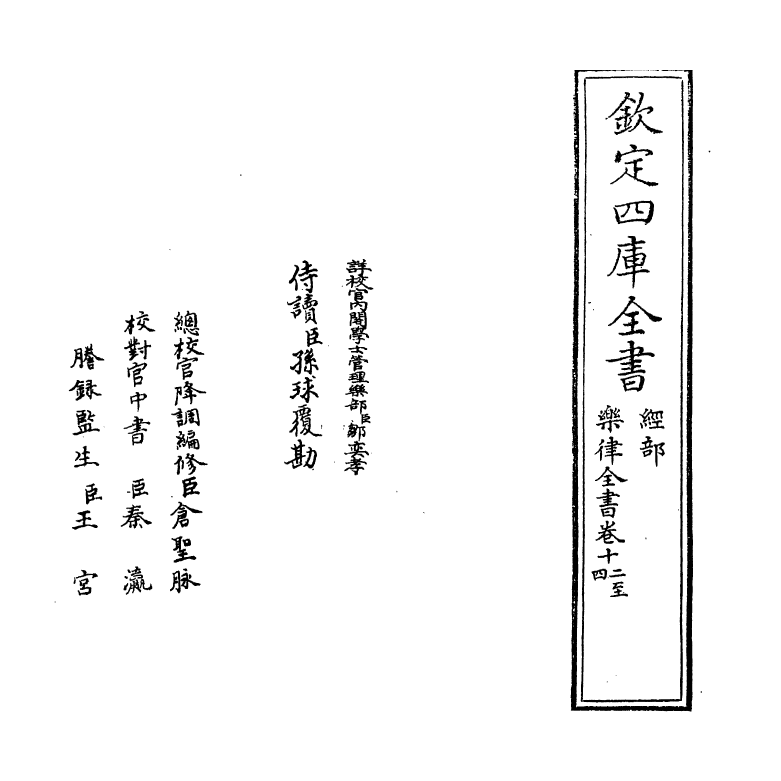 欽定四庫全書
經部
樂律全書卷十二至十四
詳校官內閣學士管理樂部臣鄒奕孝
侍讀臣孫球覆勘
總校官降調編修臣倉聖脉
校對官中書臣秦瀛
謄録監生臣王宮